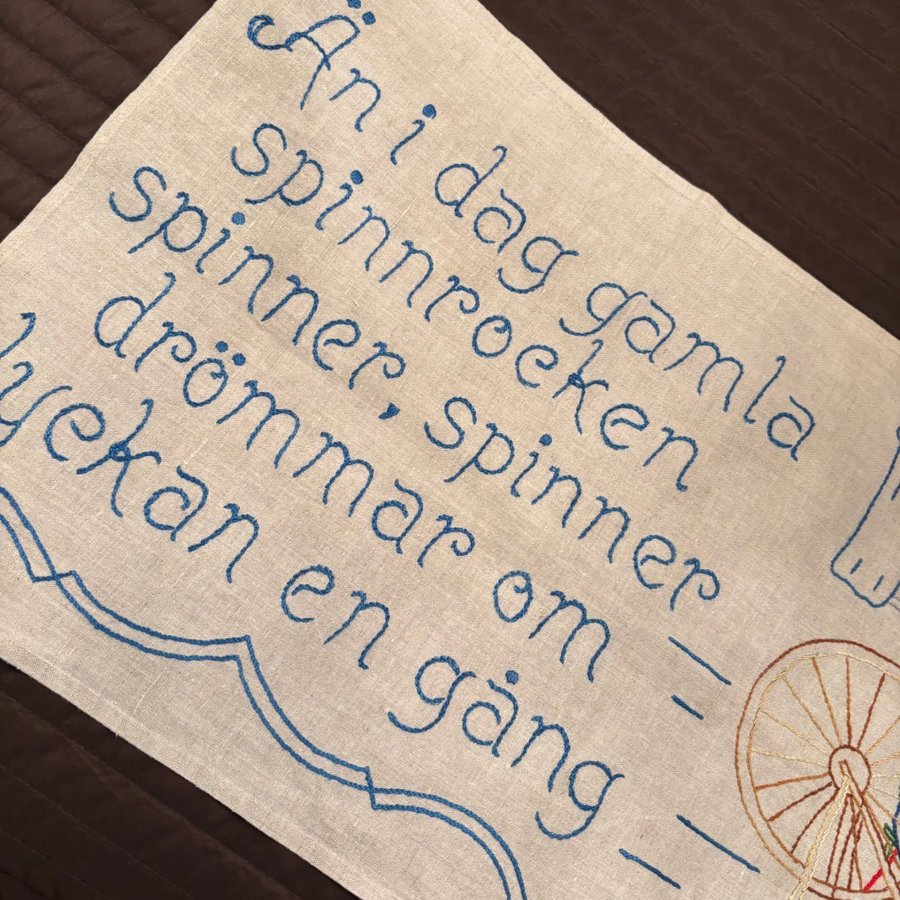 Än i dag gamla
spinnrocken
spinner, spinner
drömmar om
lyckan en gång